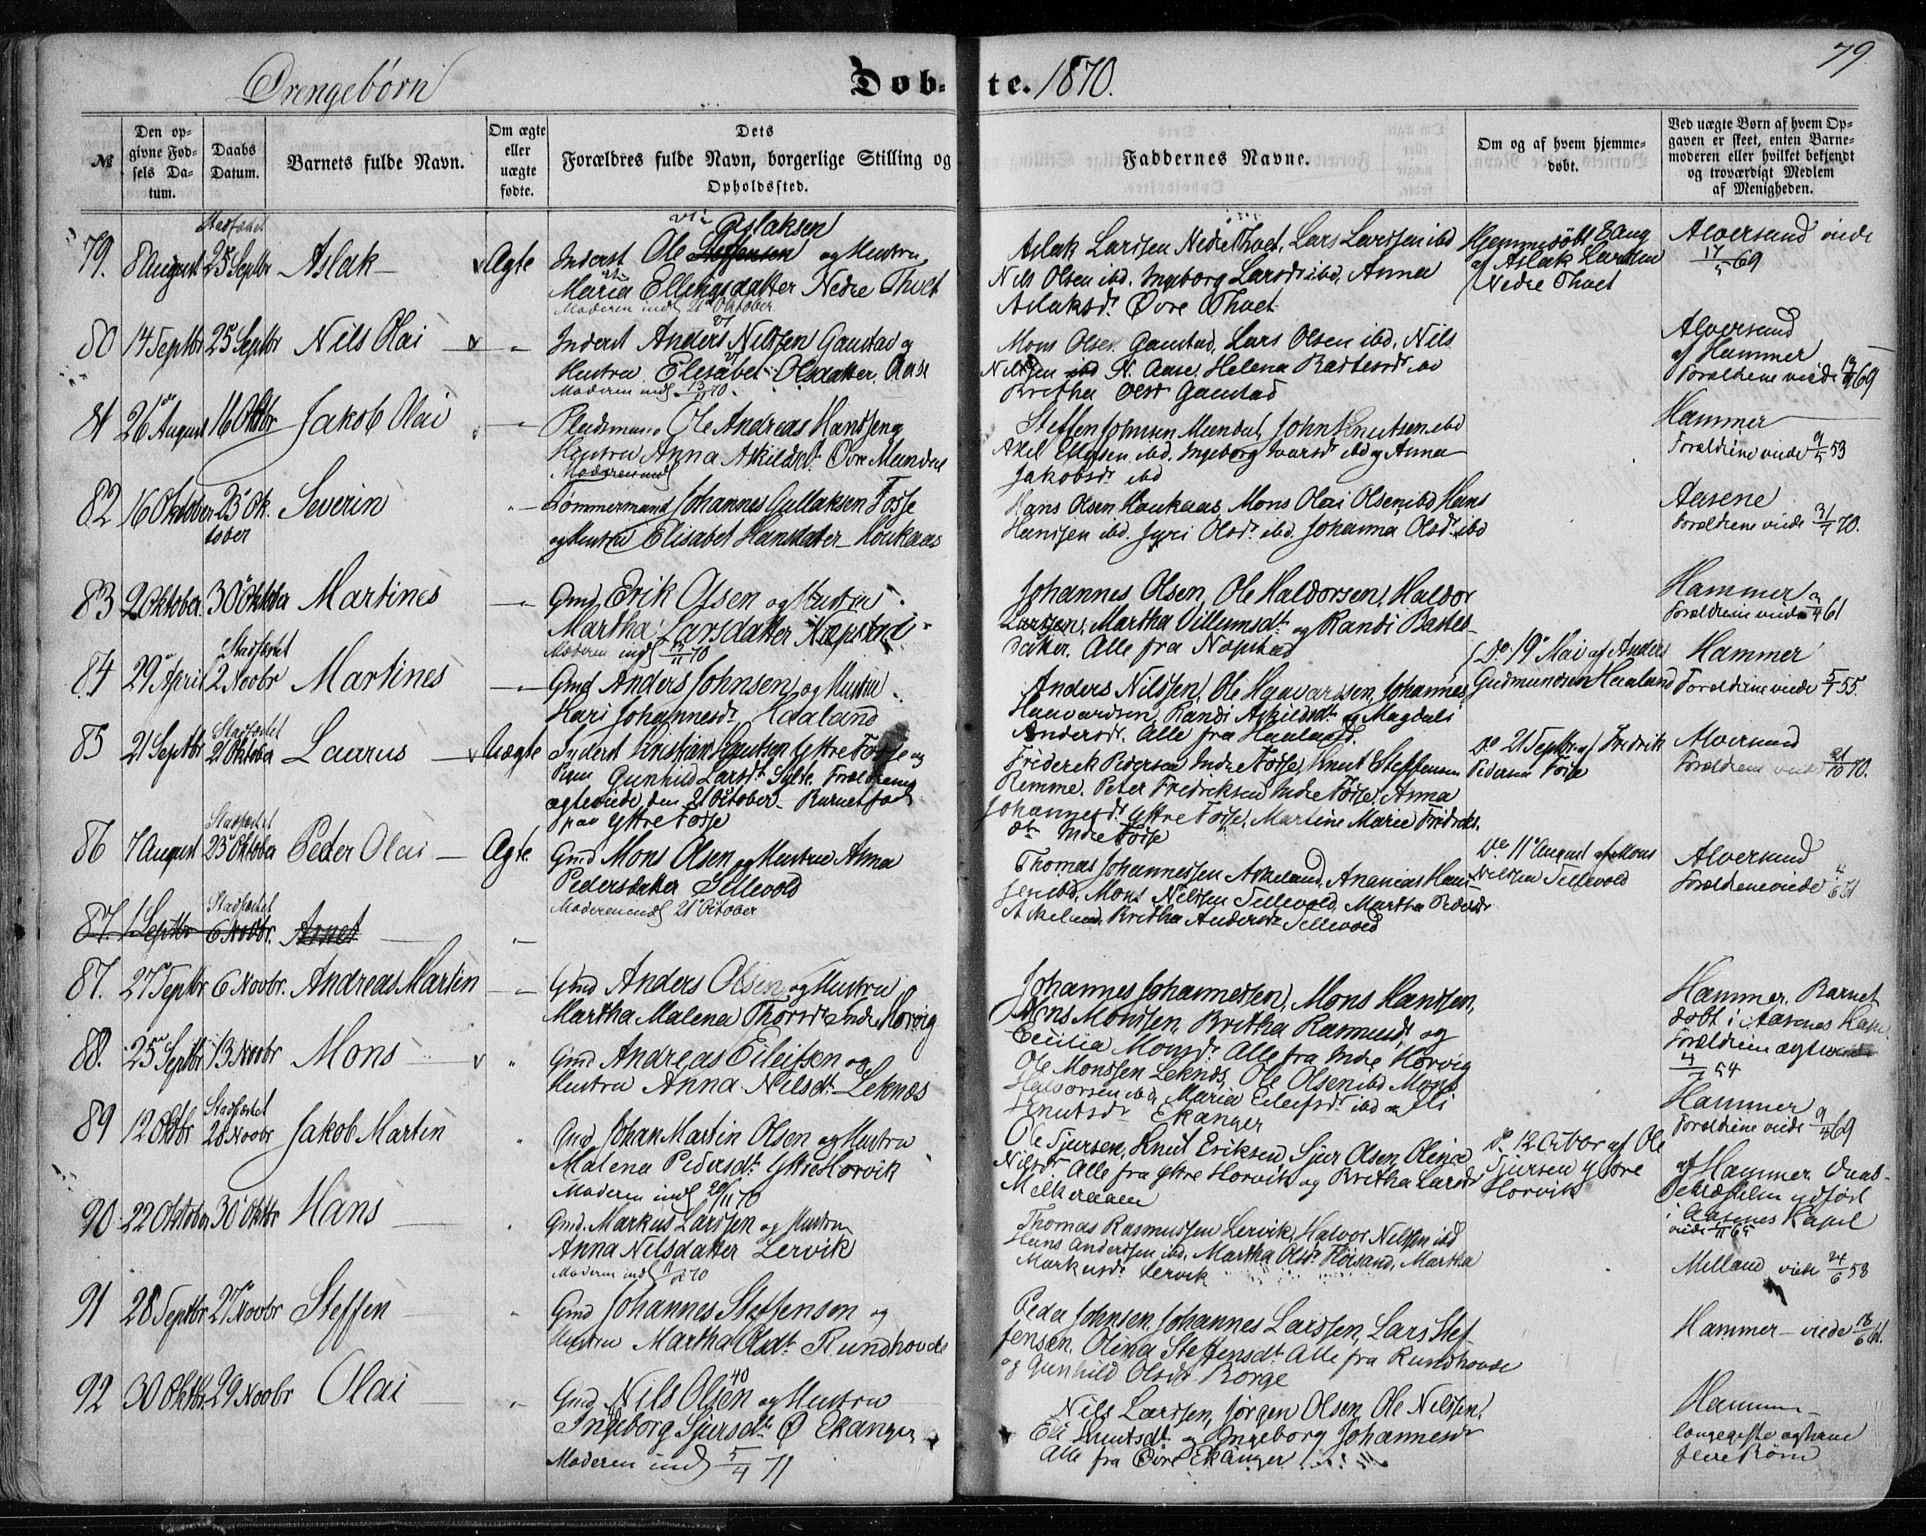 79.
Drengebørn
Døb-te. 1870.
№
Den op-
givne Fød-
sels Da-
tum.
Daabs
Datum.
Barnets fulde Navn.
Om ægte
eller
uægte
fødte.
Dets
Forældres fulde Navn, borgerlige Stilling og
Opholdssted.
Faddernes Navne.
Om og af hvem hjemme-
døbt.
Ved uægte Børn af hvem Op-
gaven er skeet, enten Barne-
moderen eller hvilket bekjendt
og troværdigt Medlem
af Menigheden.
Stadfæstet
79. 8 August 25 Septbr Aslak Ægte
Aslaksen
Inderst Ole Steffensen og Hustru
Maria Ellingsdatter Nedre Thvet
Moderen indl 21 October
Aslak Larssen Nedre Thvet, Lars Larssen ibd
Nils Olsen ibd. Ingeborg Larsdr ibd, Anna
Aslaksdr Øvre Thvet
Hjemmedøbt 8 Aug
af Aslak Larssen
Nedre Thvet
Alversund viede
17/5 69
80 14 Septbr 25 Septbr Nils Olai
Inderst Anders Nilssen Gaustad og
Hustru Elisabet Olsdatter Aase
Moderen indl 13/11 70.
Mons Olsen Gaustad, Lars Olsen ibd. Nils
Nilssen ibd N. Aase, Helena
Britha Olsdr Gaustad
Alversund
af Hammer
Forældrene viede 69
81 26 August 16 Oktbr Jakob Olai
Pladsmand Ole Andreas Hansen og
Hustru Anna Askildsdr Øvre Mundal
Moderen indl
Steffen Johnsen Mundal, John Knutsen ibd
Axel Ellingsen ibd. Ingeborg Ivarsdr ibd og Anna
Jakobsdr ibd
Hammer
Forældrene viede 53
82 16 Oktober 23 Ok-
tober Severin
Tømmermand Johannes Gullaksen Fosse
og Hustru Elisabet Hansdatter Houkaas
Hans Olsen Haukaas, Mons Olai Olsen ibd Hans
Hanssen ibd. Guri Olsdr ibd. Johanna Olsdr ibd
Aasene
Forældrene viede 31/7 70.
83 2 Oktober 30 Oktober Martines
Gmd Erik Olsen og Hustru
Martha Larsdatter Nøpstad
Moderen indl 13/11 70
Johannes Olsen, Ole Haldorsen, Haldor
Larssen, Martha Villumsdr og Randi Bastes-
datter. Alle fra Nøpstad
Hammer
Forældrene viede 61
Stadfæstet
84 29 April 2 Novbr Martines
Gmd Anders Johnsen og Hustru
Kari Johannesdr Haaland
Anders Nilssen, Ole Haavarssen, Johannes
Haavardsen, Randi Askildsdr og Magdali
Andersdr. Alle fra Haaland.
Do 19 Mai af Anders
Gudmundsen Haaland
Hammer
Forældrene viede 5/7 55.
Stadfæstet
85 21 Septbr 21 Oktober Laurus Uægte
Inderst Kristian Knutsen Ytre Fosse og
Pige Gunhild Larsdr Sylte. Forældrene
ægteviede den 21 October - Barnet født
paa Ytre Fosse
Friderik Pedersen Indre Fosse, Knut Steffensen
Remme. Peter Fredriksen Indre Fosse, Anna
Johannesdr Ytre Fosse, Martine Marie Fredriks-
dr Indre Fosse
Do 21 Septbr af Fridrik
Pedersen Fosse
Alversund
Forældrene viede 21/10 70.
Stadfæstet
86 7 August 23 Oktober Peder Olai Ægte
Gmd Mons Olsen og Hustru Anna
Pedersdatter Tellevold
Moderen indl 21 October
Thomas Johannessen Askeland, Ananias Hans-
sen ibd, Mons Nilssen Tellevold, Martha Pedersdr
Askeland, Britha Andersdr Tellevold
Do 11 August af Mons
Nilssen Tellevold
Alversund
Forældrene viede
Stadfæstet
87. 1 Septbr 6 Novbr. Arnet
87. 27 Septbr 6 Novbr. Andreas Martin
Gmd Anders Olsen og Hustru
Martha Malena Thorsdr Indre Horvig
Johannes Johannessen, Mons Hanssen,
Mons Monssen, Britha Rasmusdr og
Cecilia Monsdr Alle fra Indre Horvig
Hammer. Barnet
døbt i Aasenes Kapel
Forældrene ægteviede
54
88. 25 Septbr 13 Novbr Mons
Gmd Andreas Eilefsen og
Hustru Anna Nilsdr Leknæs
Ole Monssen Leknæs, Ole Olsen ibd Mons
Halvorsen ibd, Maria Eilefsdr ibd og Eli
Knutsdr Ekanger
Hammer
Forældrene viede 69
Stadfæstet
89 12 Oktbr 28 Novbr Jakob Martin
Gmd Johan Martin Olsen og Hustru
Malena Pedersdr Ytre Horvik
Moderen indl 20/11 70
Ole Sjursen, Knut Eriksen, Sjur Olsen, Olina
Nilsdr Alle fra Ytre Horvik og Britha Larsdr
Melkeraaen
Do 12 Octbr af Ole
Sjursen Ytre
Horvik
af Hammer Daab-
bekræftelsen udført
i Aasenes Kapel
viede 65
90 22 Oktober 30 Oktbr Hans
Gmd. Markus Larssen og Hustru
Anna Nilsdatter Lervik
Moderen indl 70
Thomas Rasmussen Lervik, Halvor Nilssen ibd
Hans Anderssen ibd. Martha Olsdr Floisand, Martha
Markusdr Lervik
Meland viede 24/6 58
91 28 Septbr 27 Novbr Steffen
Gmd Johannes Steffensen og
Hustru Martha Olsdr Rundhovde
Peder Johnsen, Johannes Larssen, Lars Stef-
fensen, Olina Steffensdr Alle fra Rundhovde
og Gunhild Olsdr Borge
Hammer - viede 61.
92 30 Oktbr 29 Novbr Olai
Gmd Nils Olsen 40 og Hustru
Ingeborg Sjursdr Ø Ekanger
Moderen indl 5/4 71
Nils Larssen, Jørgen Olsen, Ole Nilssen,
Eli Knutsdr og Ingeborg Johannesdr
Alle fra Øvre Ekanger
Hammer
længe gifte og have
flere Børn